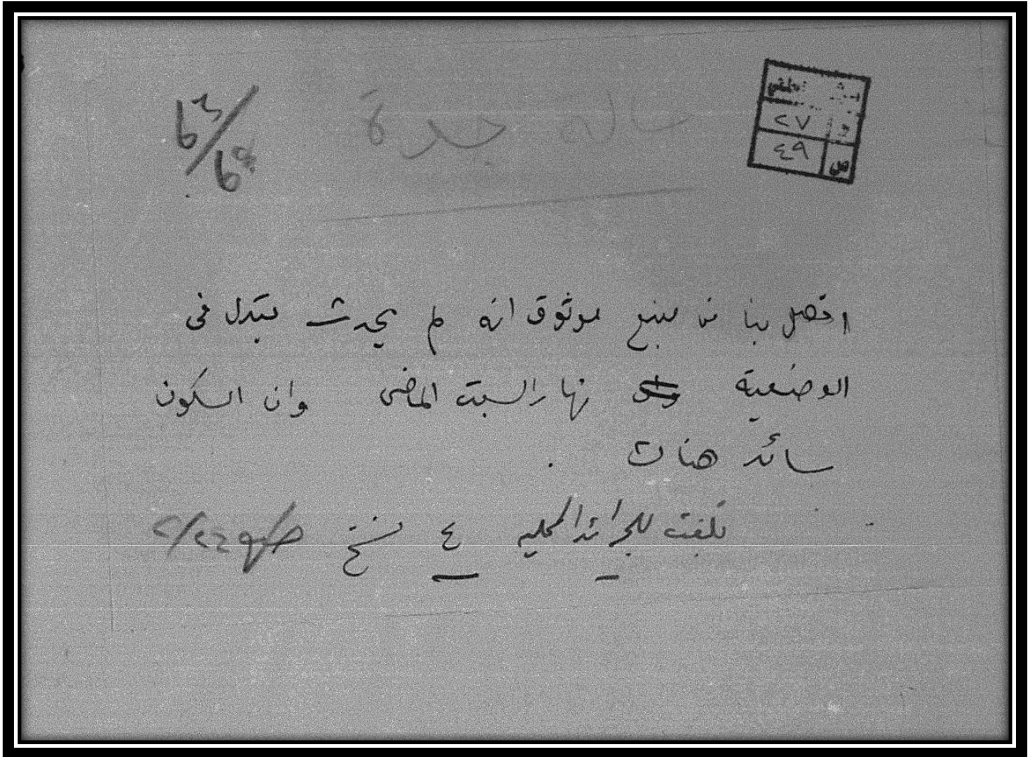 حالة جدة
٢٧
٤٩ ص
اتصل بنا من منبع موثوق انه لم يحدث تبدل في
الوضعية نهار السبت الماضي وان السكون
سائد هناك .
بلغت للجرائد المحليه ٤ نسخ